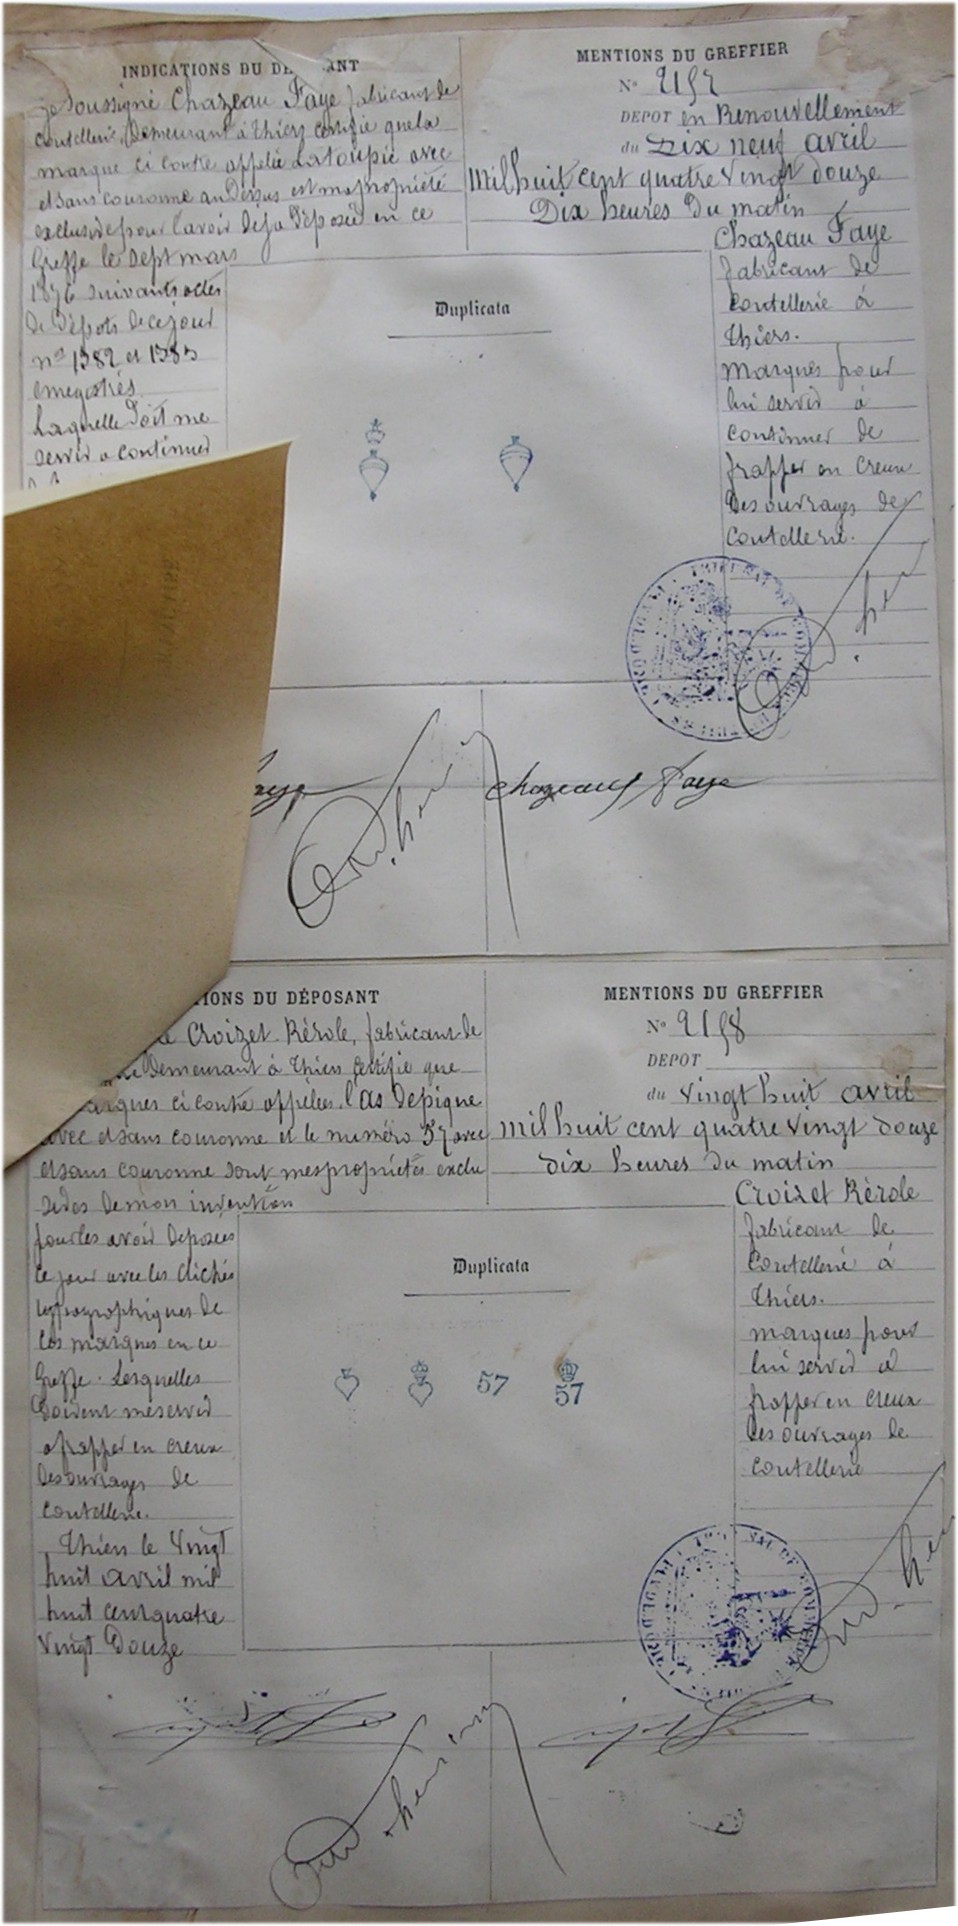 INDICATIONS DU DÉ ANT
Je soussigné Chazeau Faye fabricant de
coutellerie, Demeurant à Thiers certifie que la
marque ci contre appelée La toupie avec
et sans couronne au Dessus est ma propriété
exclusive pour l'avoir déjà Déposée en ce
Greffe le sept mars
1876 suivants actes
de Dépots de ce jour
nos 1382 et 1383
enregistrés.
Laquelle doit me
servir a continuer
MENTIONS DU GREFFIER
No 2157
DEPOT en Renouvellement
du Dix neuf avril
Mil huit cent quatre vingt douze
Dix heures du matin
Chazeau Faye
fabricant de
Coutellerie à
Thiers.
Marques pour
lui servir à
continuer de
frapper en creux
des ouvrages de
Coutellerie.
Duplicata
Faye
Chazeau Faye
TIONS DU DÉPOSANT
Croizet Rérole, fabricant de
Demeurant à Thiers certifie que
marques ci contre appelées l'as De pique
avec et sans couronne et le numéro 57 avec
et sans couronne sont mes propriétés exclu
sives de mon invention
pour les avoir déposées
ce jour avec les clichés
typographiques de
ces marques en ce
Greffe. Lesquelles
doivent me servir
a frapper en creux
des ouvrages de
Coutellerie.
Thiers le vingt
huit avril mil
huit cent quatre
vingt Douze
MENTIONS DU GREFFIER
No 2158
DEPOT
du vingt huit avril
mil huit cent quatre vingt douze
dix heures du matin
Croizet Rérole
fabricant de
Coutellerie à
Thiers.
marques pour
lui servir à
frapper en creux
des ouvrages de
Coutellerie
Duplicata
57
57